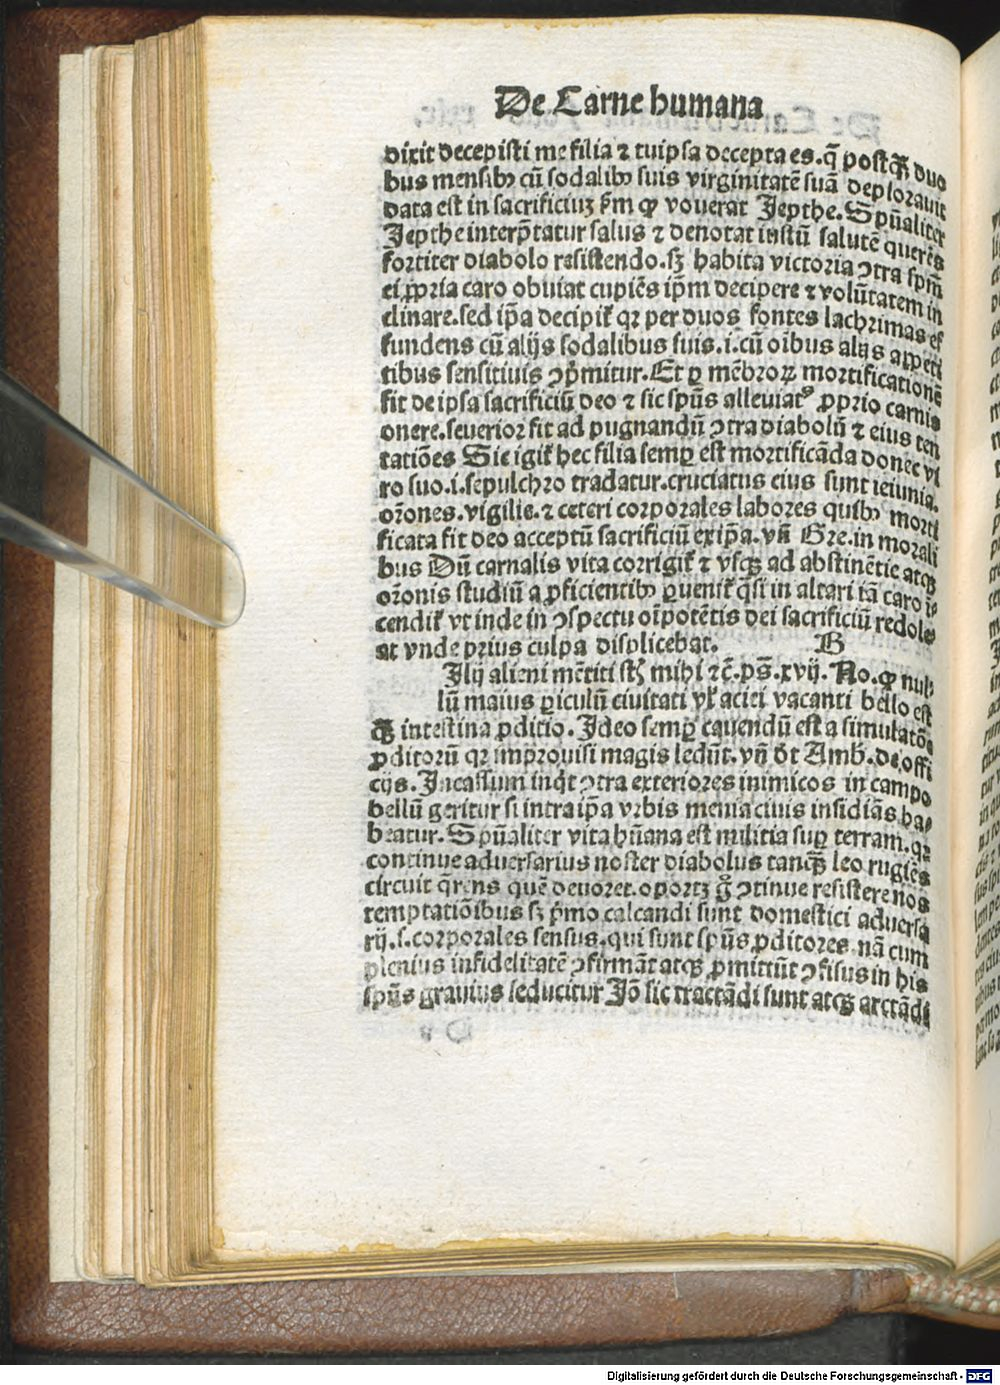 De Carne humana
dixit decepisti me filia ⁊ tu ipsa decepta es. q̄ postq̄ꝫ duo
bus mensibꝰ cū sodalibꝰ suis virginitatē suā deplorauit
data est in sacrificiuꝫ ẜm ꝙ vouerat Jepthe. Sp̄ualiter
Jepthe interp̄tatur salus ⁊ denotat iustū salutē querēs
fortiter diabolo resistendo. sꝫ habita victoria ꝯtra sp̄m
ei ꝓpria caro obuiat cupiēs ip̄m decipere ⁊ volūtatem in
clinare. sed ip̄a decipit̄ qꝛ per duos fontes lachrimas ef
fundens cū alijs sodalibus suis. i. cū oībus alijs appeti
tibus sensitiuis ꝯp̄mitur. Et ꝑ mēbroꝝ mortificationē
fit de ipsa sacrificiū deo ⁊ sic sp̄us alleuiatꝰ ꝓprio carnis
onere. seuerior fit ad pugnandū ꝯtra diabolū ⁊ eius ten
tatiōes Sic igit̄ hec filia semꝑ est mortificāda donec vi
ro suo. i. sepulchro tradatur. cruciatus eius sunt ieiunia.
or̄ones. vigilie. ⁊ ceteri corporales labores quibꝰ morti
ficata fit deo acceptū sacrificiū ex ip̄a. vn̄ Gre. in morali
bus Dū carnalis vita corrigit̄ ⁊ vsqꝫ ad abstinētie atqꝫ
or̄onis studiū a ꝓficientibꝰ ꝑuenit̄ q̄si in altari iā caro ī
cendit̄ vt inde in ꝯspectu oīpotētis dei sacrificiū redole
at vnde prius culpa displicebat. B
Jlij alieni mētiti st̄ mihi ⁊c̄. ps̄. xvij. No. ꝙ nul
lū maius ꝑiculū ciuitati vl̄ aciei vacanti bello est
q̄ꝫ intestina ꝓditio. Jdeo semꝑ cauendū est a simulatōe
ꝓditorū qꝛ improuisi magis ledūt. vn̄ dt̄ Amb. de offi
cijs. Jncassum inq̄t ꝯtra exteriores inimicos in campo
bellū geritur si intra ip̄a vrbis menia ciuis insidiās ha⸗
beatur. Sp̄ualiter vita hūana est militia suꝑ terram. qꝛ
continue aduersarius noster diabolus tanq̄ꝫ leo rugiēs
circuit q̄rens quē deuoret. oportꝫ g̊ ꝯtinue resistere nos
temptatiōibus sꝫ p̄mo calcandi sunt domestici aduersa
rij. s. corporales sensus. qui sunt sp̄us ꝓditores. nā cum
plenius infidelitatē ꝯfirmāt atqꝫ ꝓmittūt ꝯfisus in his
sp̄us grauius seducitur Jō sic tractādi sunt atqꝫ arctādi
Digitalisierung gefördert durch die Deutsche Forschungsgemeinschaft - DFG